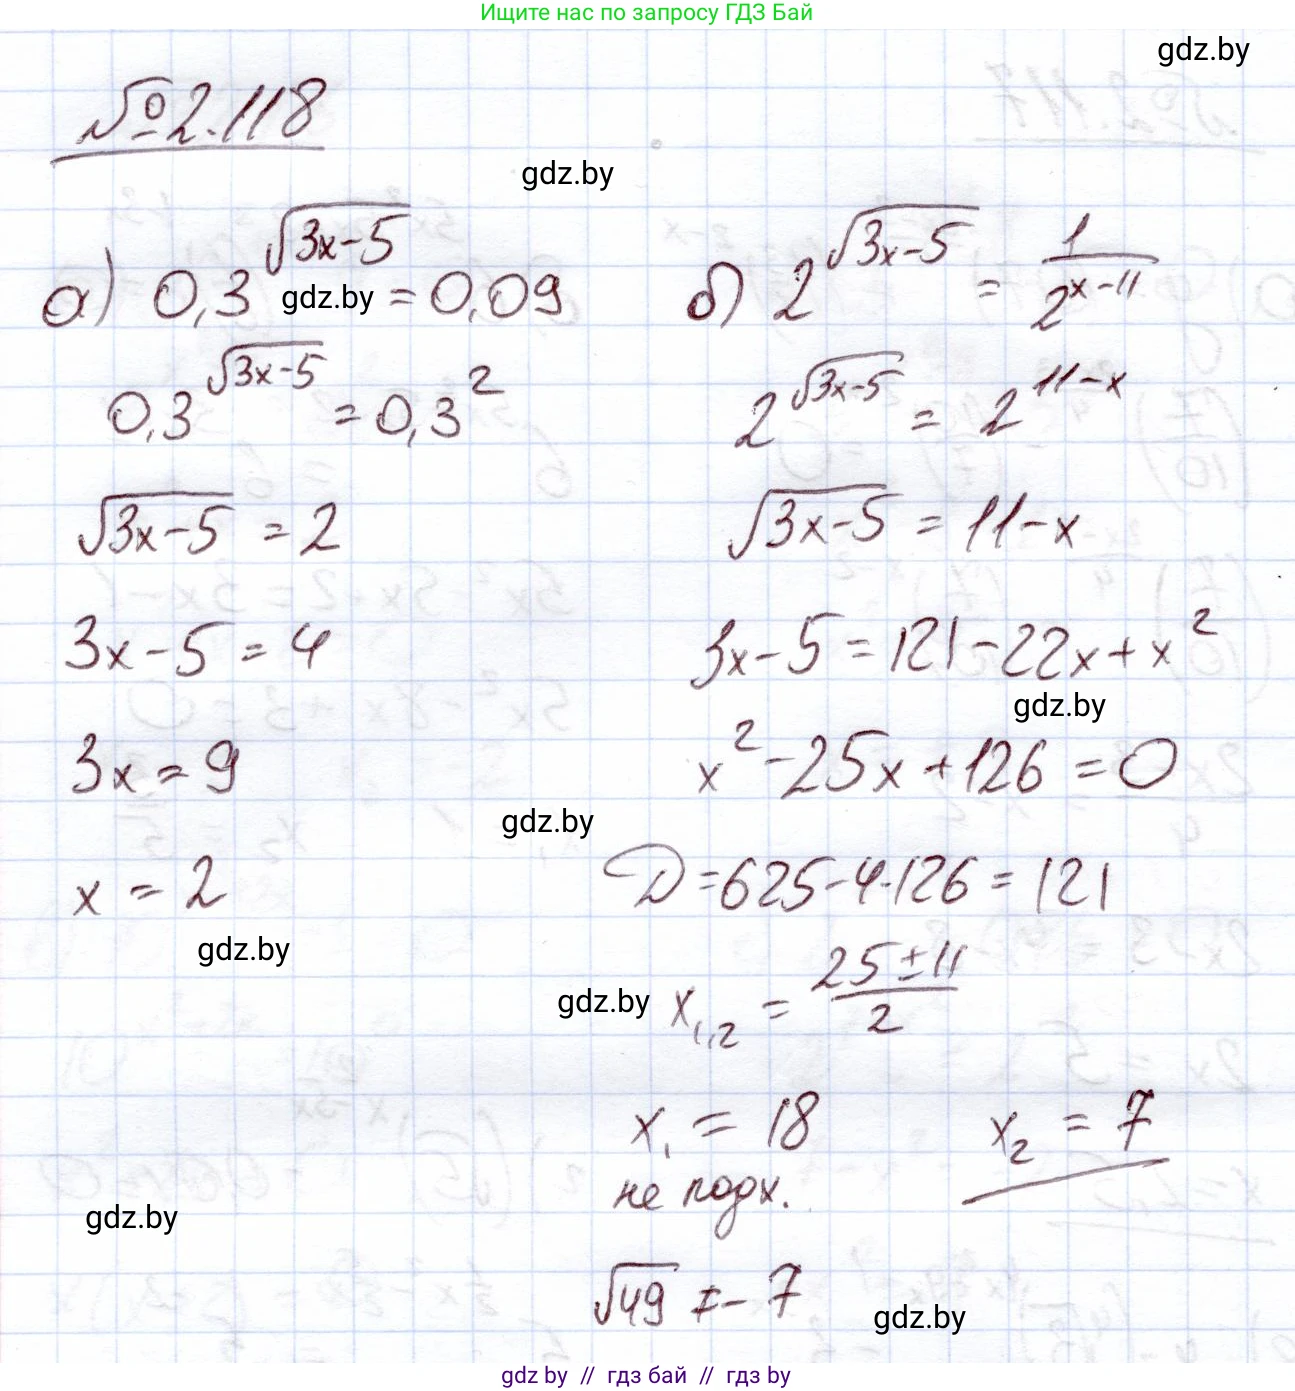 Ищите нас по запросу ГДЗ Бай
gdz.by
№2.118
gdz.by
а) 0,3^√(3x-5) = 0,09
gdz.by
0,3^√(3x-5) = 0,3^2
√(3x-5) = 2
3x-5 = 4
3x = 9
x = 2
gdz.by
б) 2^√(3x-5) = 1/2^(x-11)
2^√(3x-5) = 2^(11-x)
√(3x-5) = 11-x
3x-5 = 121-22x+x^2
gdz.by
x^2-25x+126=0
gdz.by
D=625-4·126=121
gdz.by
x1,2 = (25±11)/2
x1 = 18
не подх.
x2 = 7
gdz.by
√49 ≠ -7
gdz.by
gdz by // гдз бай // gdz by